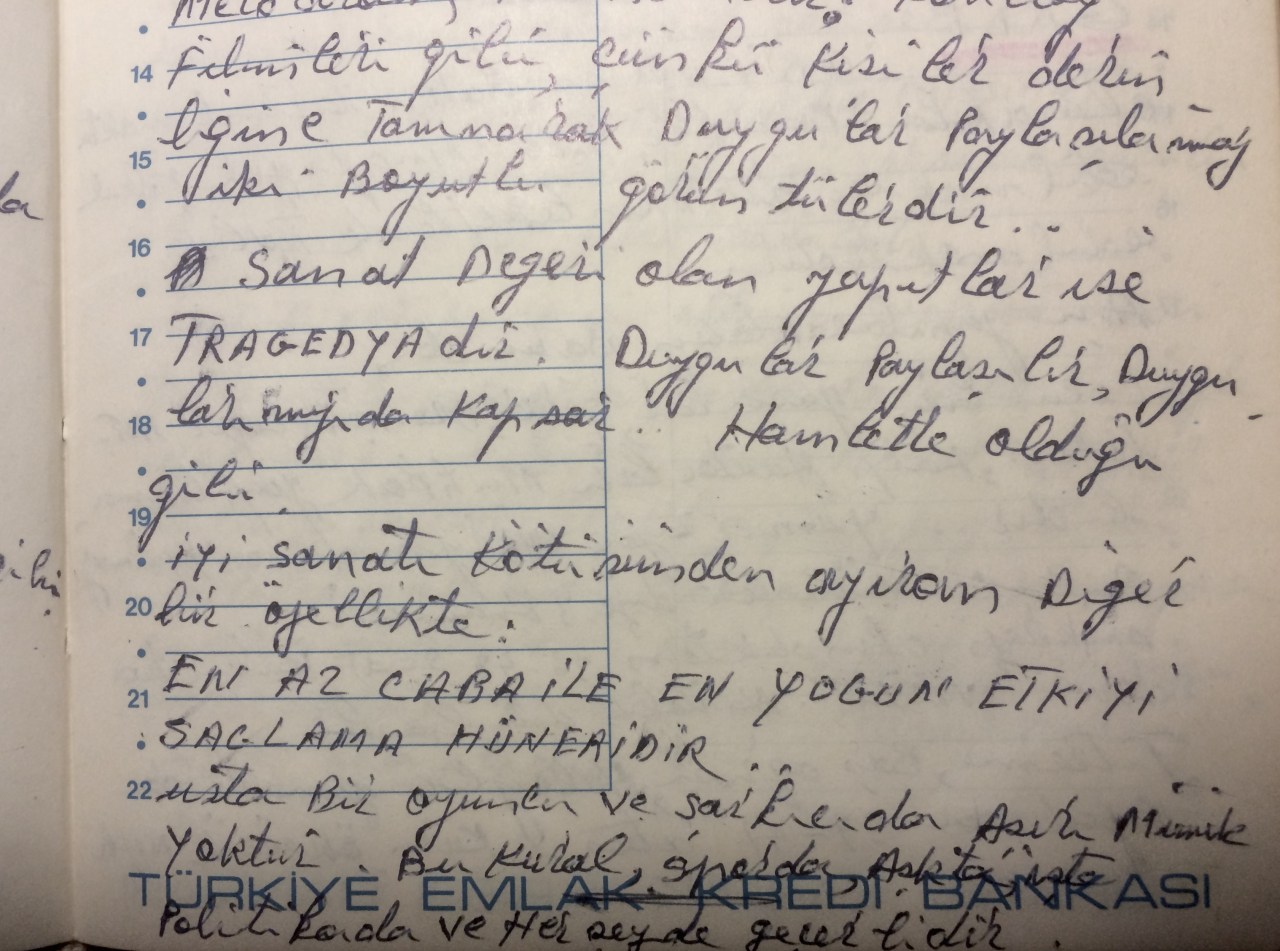 filmleri gibi, çünkü kişiler derin
liğine Tanınarak Duygu'lar Paylaşılamaz
iki Boyutlu görün tülerdir...
Sanat Değeri olan yapıtlar ise
TRAGEDYAdır. Duygular Paylaşılır, Duygu
larımızıda Kapsar. Hamlette olduğu
gibi.
iyi sanatı Kötüsünden ayıran Diğer
bir özellikte:
EN AZ CABA iLE EN YOGUN ETKİYİ
SAGLAMA HÜNERİDİR...
usta Bir oyuncu ve şarkıcıda Aşırı Mimik
yoktur. Bu Kural, sporda, Aşkta, işte
TÜRKİYE EMLAK KREDİ BANKASI
Politikada ve Her şeyde geçerlidir.
14
15
16
17
18
19
20
21
22